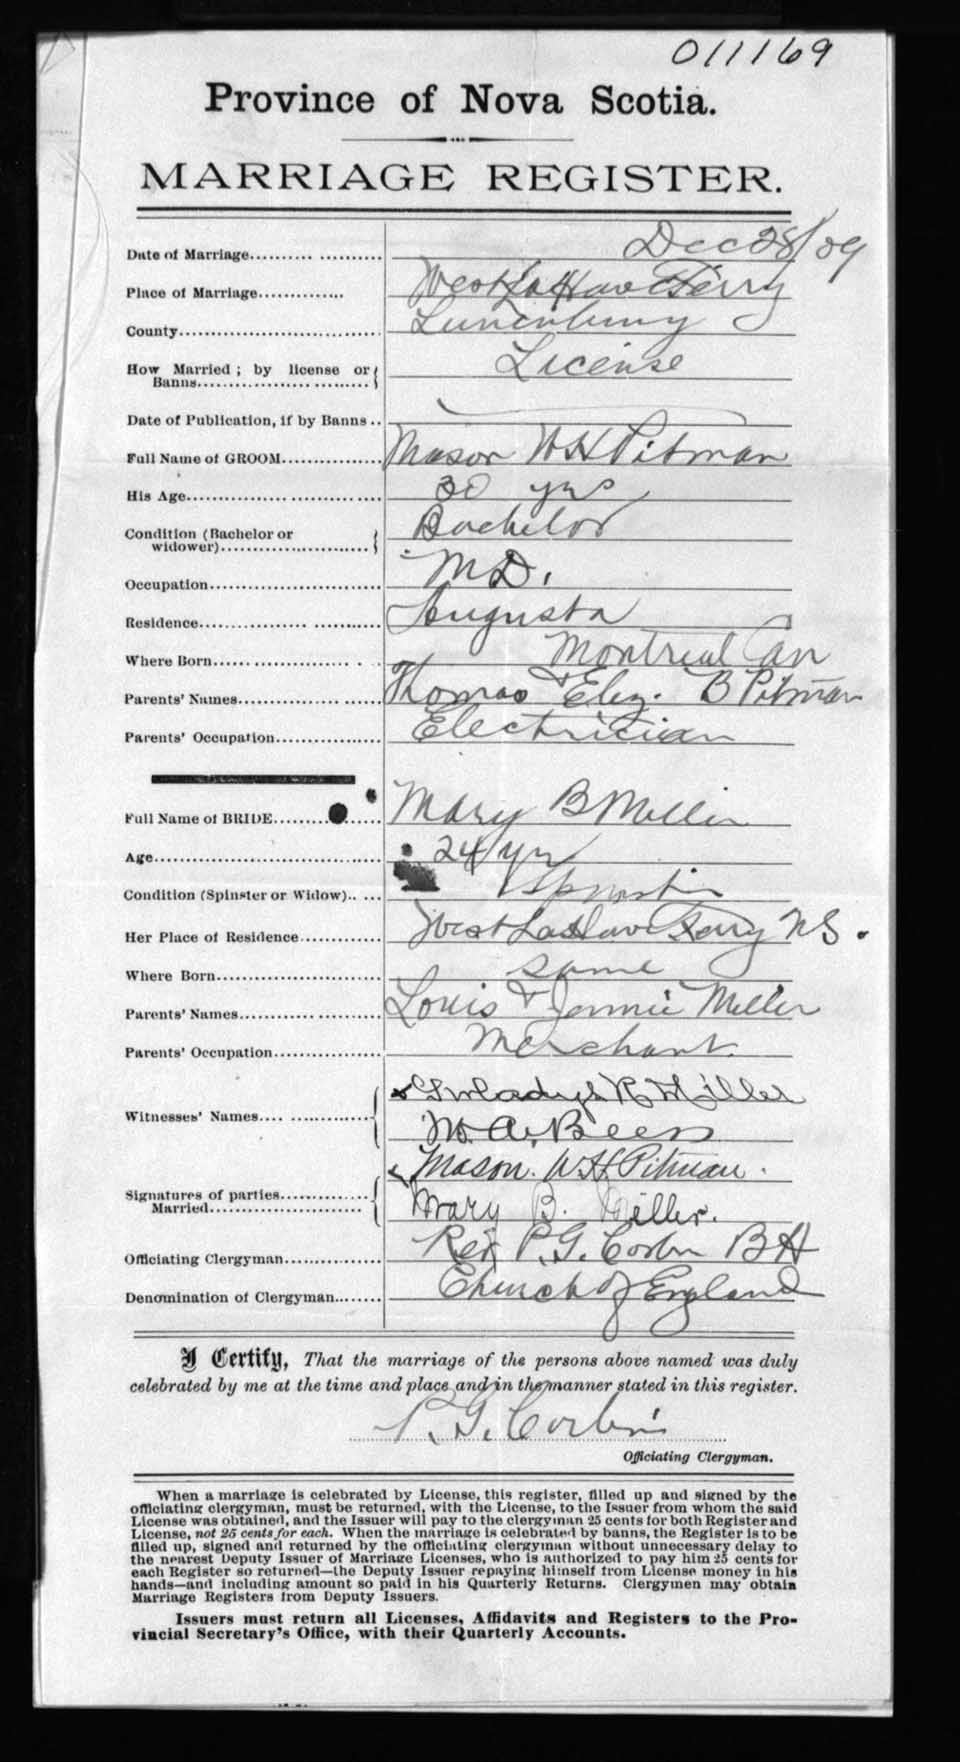 011169
Province of Nova Scotia.
MARRIAGE REGISTER.
Date of Marriage.......... ........... Dec 28/09
Place of Marriage.............. West LaHave Ferry
County................................ Lunenburg
How Married ; by license or License
Banns.................. .........
Date of Publication, if by Banns ..
Full Name of GROOM............... Mason W H Pitman
His Age................................ 30 yrs
Condition (Bachelor or Bachelor
widower)........................
Occupation........................... M D.
Residence................. ........... Augusta
Where Born...... ................ . . Montreal Can
Parents' Names.................. ...... Thomas & Eliz. B Pitman
Parents' Occupation................. Electrician
Full Name of BRIDE.................. Mary B Miller
Age...................................... 24 yrs
Condition (Spinster or Widow).. ... Spinster
Her Place of Residence............ West LaHave Ferry N S.
Where Born........................... Same
Parents' Names......... ............ Louis & Jennie Miller
Parents' Occupation................. Merchant
x Gwladys R Miller
Witnesses' Names.... ..............
A. 
Mason. W. H Pitman.
Signatures of parties..............
Married........................ Mary B. Miller.
Officiating Clergyman............... P. G. Corbin
Denomination of Clergyman........ Church of England
I Certify, That the marriage of the persons above named was duly
celebrated by me at the time and place and in the manner stated in this register.
P. G. Corbin
Officiating Clergyman.
When a marriage is celebrated by License, this register, filled up and signed by the
officiating clergyman, must be returned, with the License, to the Issuer from whom the said
License was obtained, and the Issuer will pay to the clergyman 25 cents for both Register and
License, not 25 cents for each. When the marriage is celebrated by banns, the Register is to be
filled up, signed and returned by the officiating clergyman without unnecessary delay to
the nearest Deputy Issuer of Marriage Licenses, who is authorized to pay him 25 cents for
each Register so returned—the Deputy Issuer repaying himself from License money in his
hands—and including amount so paid in his Quarterly Returns. Clergymen may obtain
Marriage Registers from Deputy Issuers.
Issuers must return all Licenses, Affidavits and Registers to the Pro-
vincial Secretary's Office, with their Quarterly Accounts.